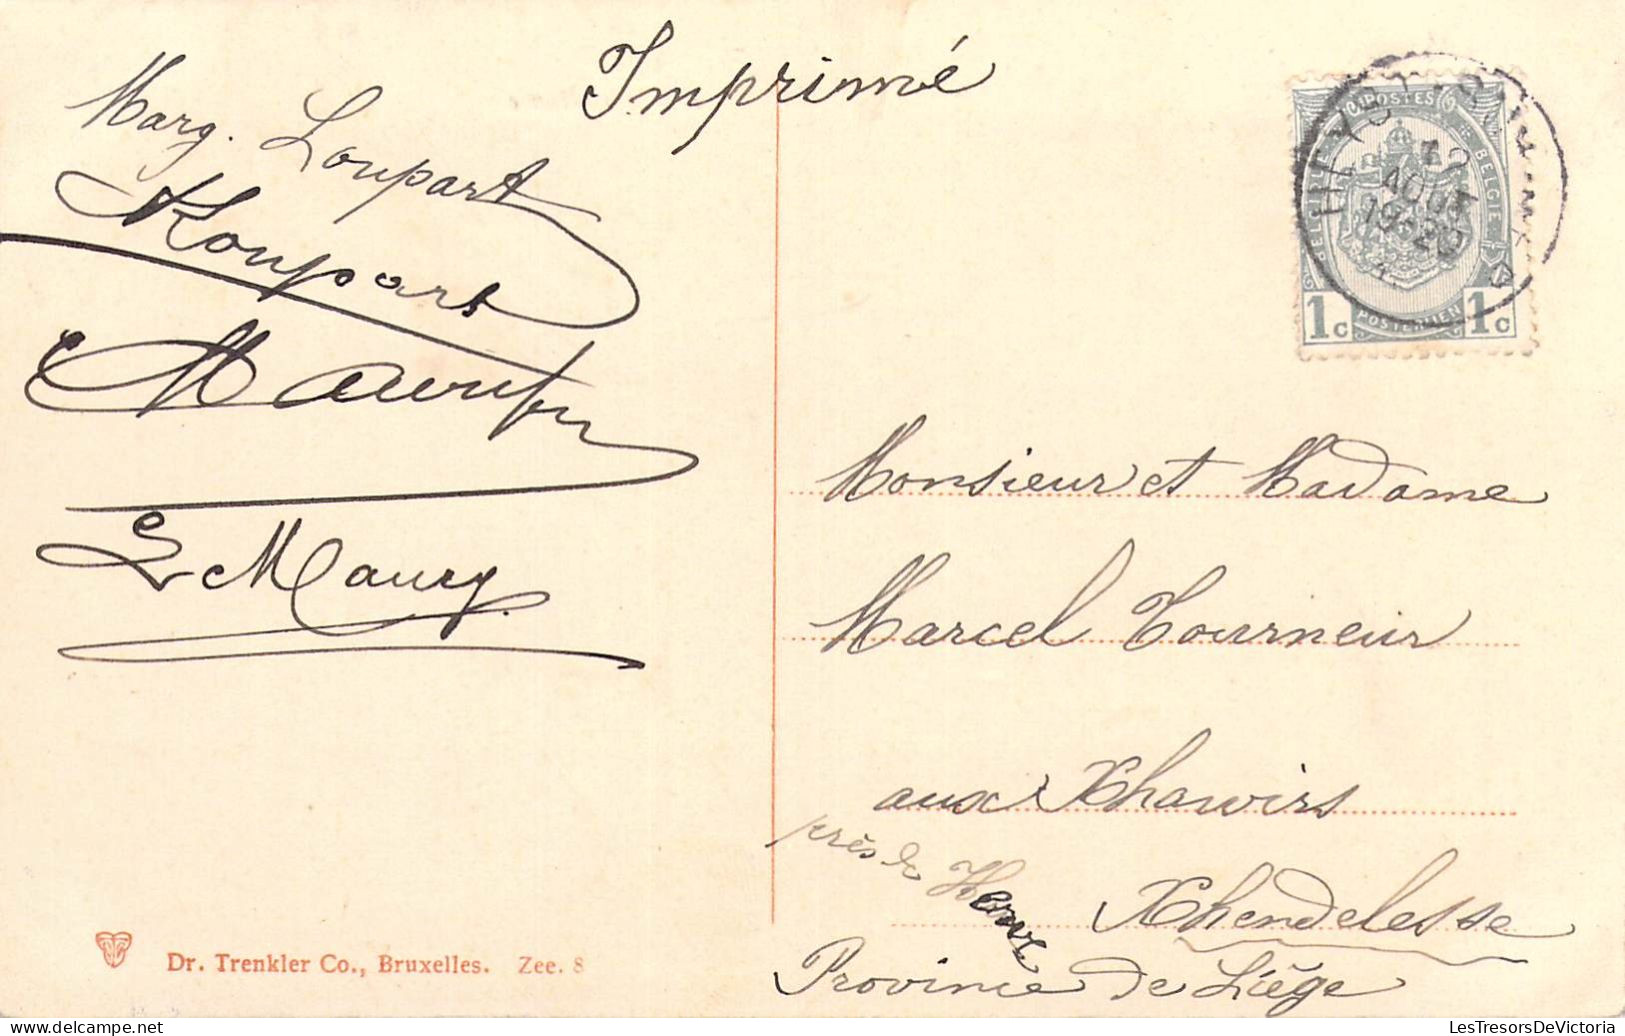 Imprimé
Marg. Loupart
Loupart
L Maury
POSTES
BELGIE
1c 1c
HEYST
12
AOUT
19-20
Monsieur et Madame
Marcel Tourneur
aux Xhawirs
près de Herve
Xhendelesse
Province de Liége
Dr. Trenkler Co., Bruxelles. Zee. 8
LesTresorsDeVictoria @ delcampe.net
LesTresorsDeVictoria